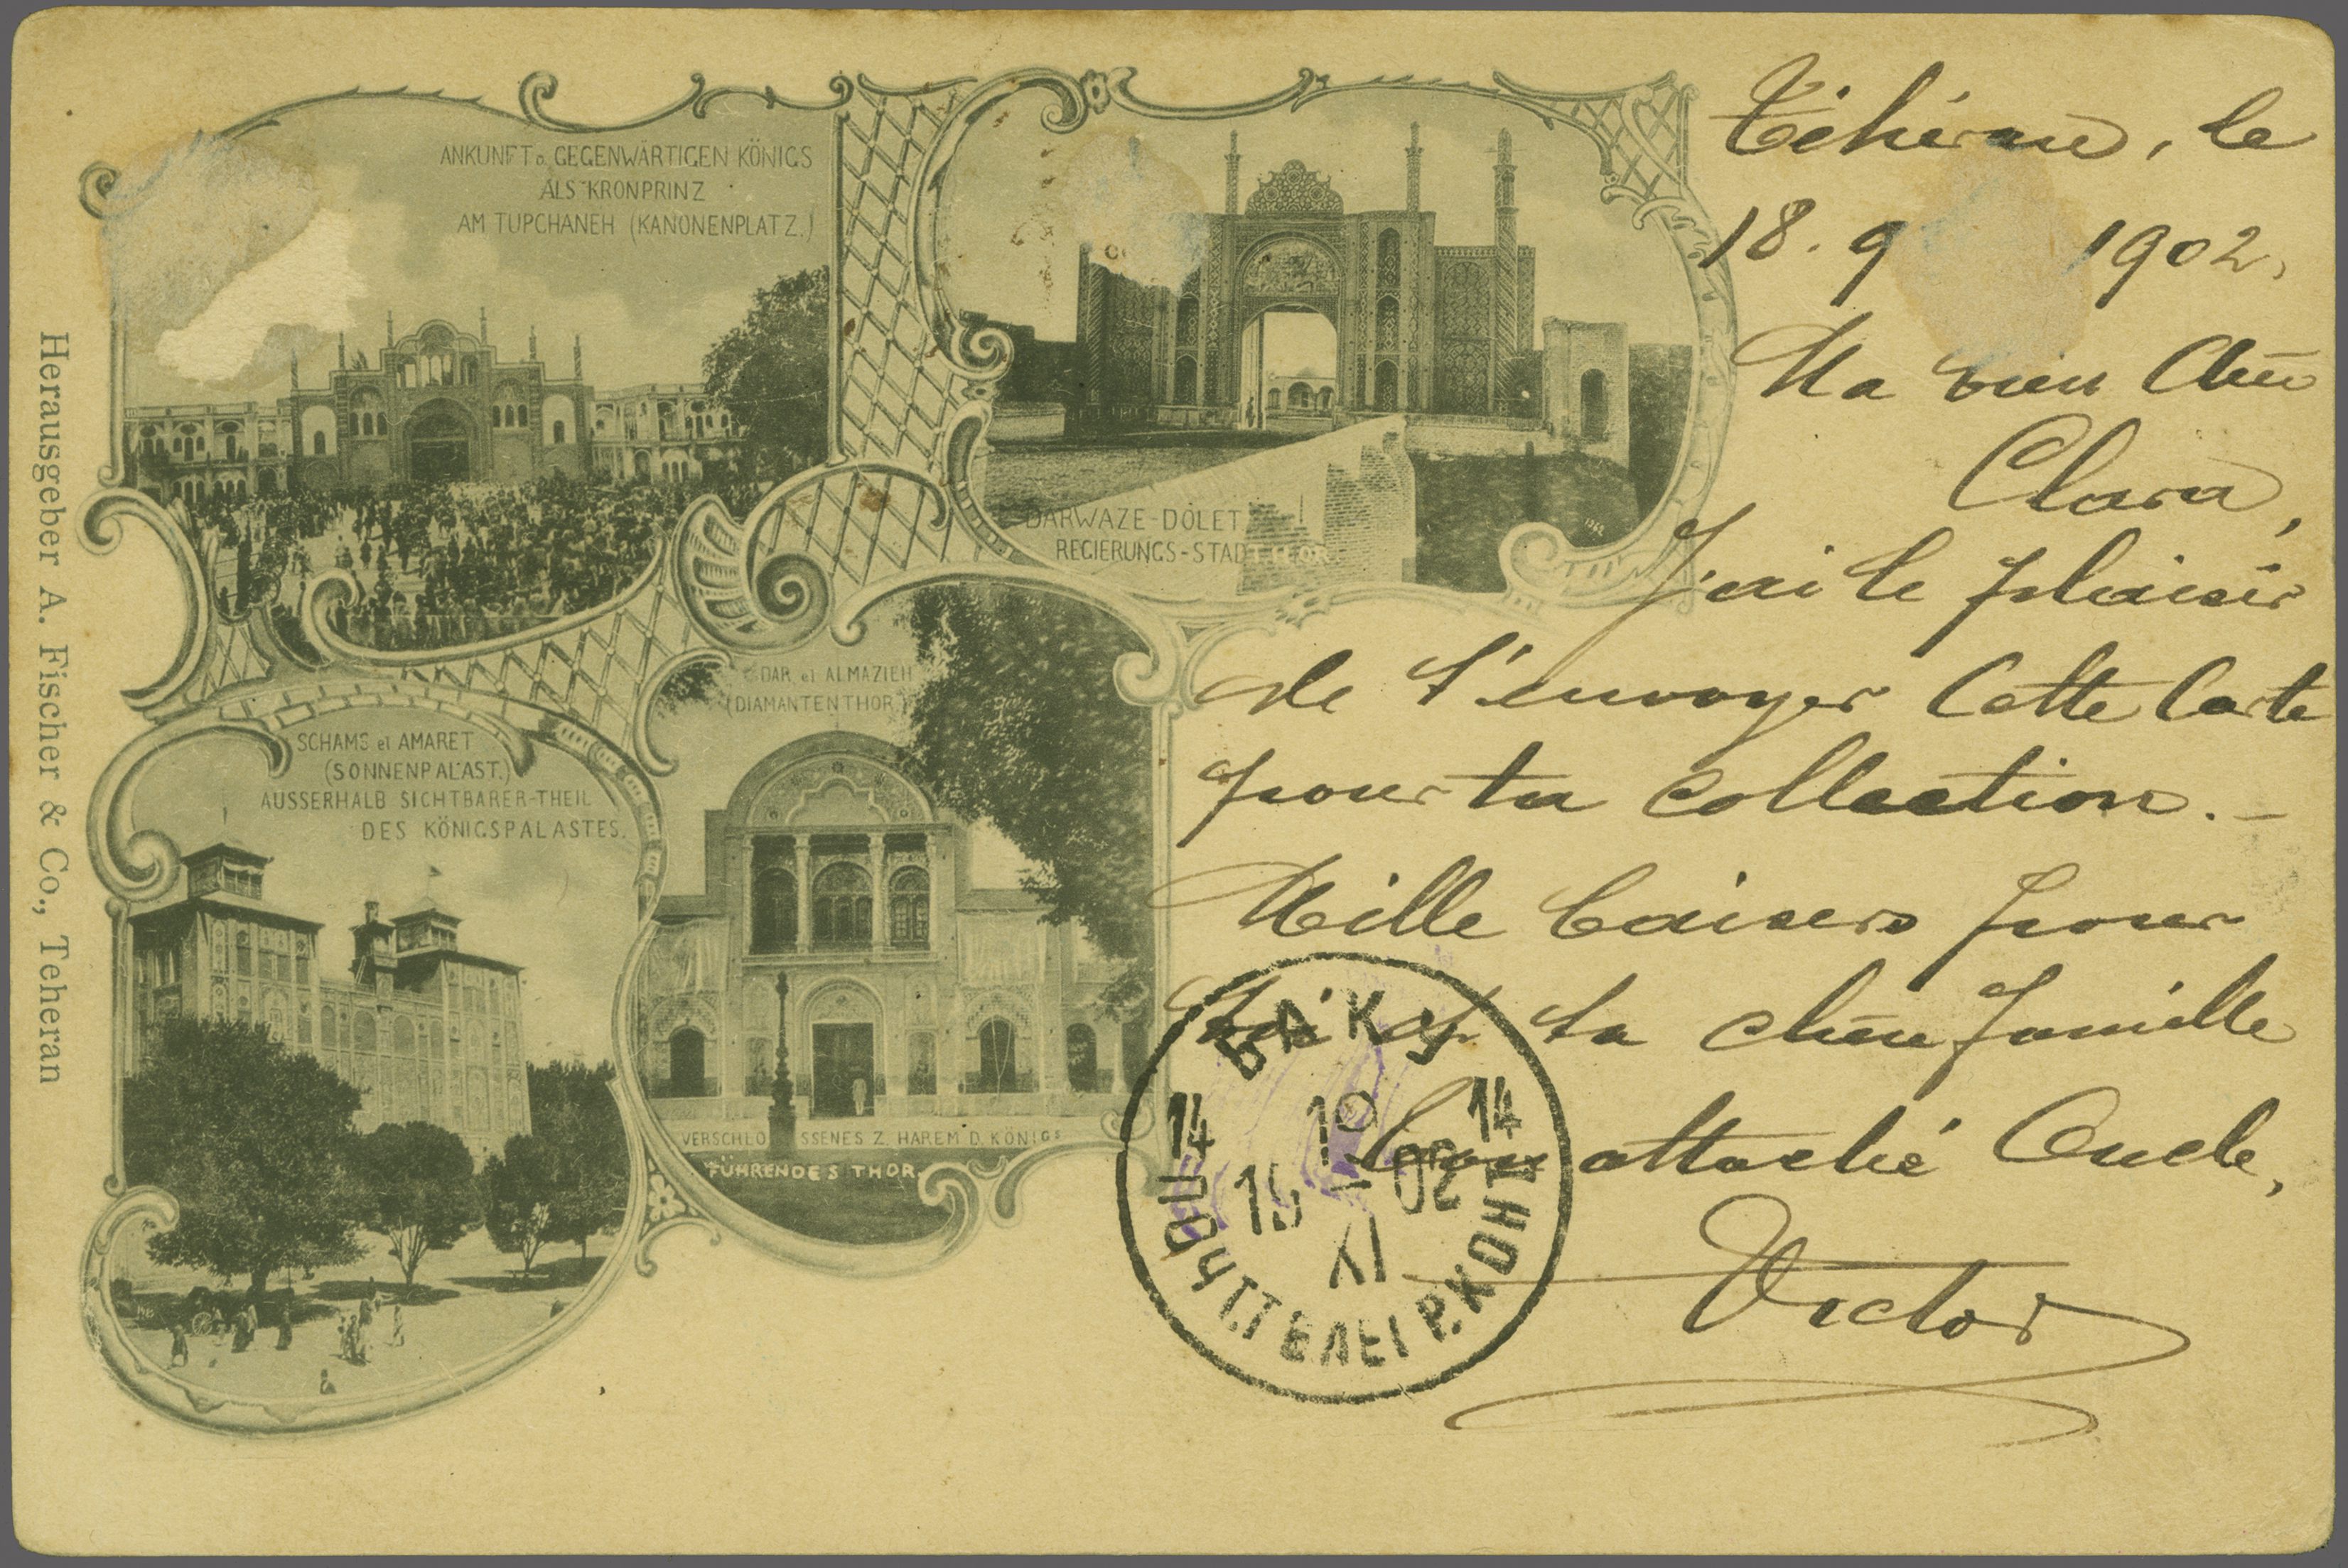 ANKUNFT d. GEGENWÄRTIGEN KÖNIGS
ALS KRONPRINZ
AM TUPCHANEH (KANONENPLATZ.)
DARWAZE-DÖLET
REGIERUNGS-STADTTHOR
DAR el ALMAZIEH
(DIAMANTENTHOR.)
VERSCHLOSSENES Z. HAREM D. KÖNIGS
FÜHRENDES THOR.
SCHAMS el AMARET
(SONNENPALAST.)
AUSSERHALB SICHTBARER-THEIL
DES KÖNIGSPALASTES.
Herausgeber A. Fischer & Co., Teheran
Téhéran, le
18. 9 1902.
Ma bien Chère
Clara,
J'ai le plaisir
de t'envoyer cette Carte
pour ta collection. —
Mille baisers pour
toi et ta chère famille
Ton attaché Oncle,
Victor
БАКУ
14 10 14
15 - 02
XI
ПОЧТ. ТЕЛЕГР. КОНТ.